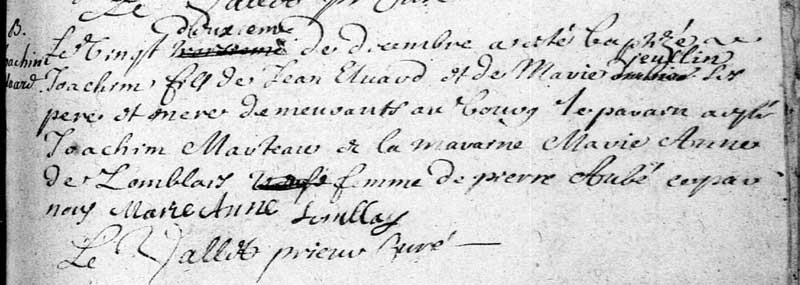 Le Vallet prieur Curé
B.
Joachim
Eluard
deuxieme
Le Vingt de decembre a esté baptizé
Joachim fils de Jean Eluard et de Marie Feuflin ses
pere et mere demeurants au bourg le parain a esté
Joachim Marteau et la maraine Marie Anne
de Lomblais femme de pierre Aubé et par
nous Marie Anne Lomblays
Le Vallet prieur Curé